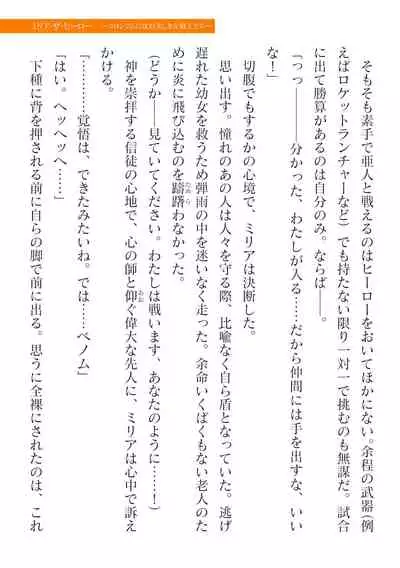 ミリア・ザ・ヒーロー
そもそも素手で亜人と戦えるのはヒーローをおいてほかにない。余程の武器(例
えばロケットランチャーなど)でも持たない限り一対一で挑むのも無謀だ。試合
に出て勝算があるのは自分のみ。ならば――。
「っっ――――分かった、わたしが入る……だから仲間には手を出すな、いい
な!」
切腹でもするかの心境で、ミリアは決断した。
思い出す。憧れのあの人は人々を守る際、比喩なく自ら盾となっていた。逃げ
遅れた幼女を救うため弾雨の中を迷いなく走った。余命いくばくもない老人のた
めに炎に飛び込むのを躊躇わなかった。
(どうか――見ていてください。わたしは戦います、あなたのように……!)
神を崇拝する信徒の心地で、心の師と仰ぐ偉大な先人に、ミリアは心中で訴え
かける。
「………覚悟は、できたみたいね。では……ベノム」
「はい。ヘッヘッヘ……」
下種に背を押される前に自らの脚で前に出る。思うに全裸にされたのは、これ